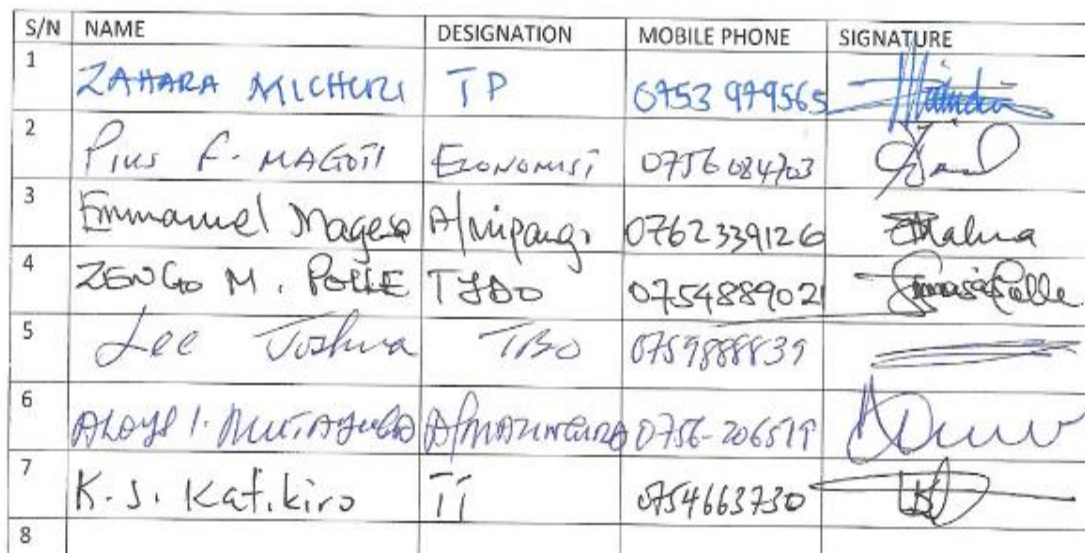 S/N NAME DESIGNATION MOBILE PHONE SIGNATURE
1 ZAHARA MICHUZI TP 0753 979565
2 Pius F. MAGOTI ECONOMIST 0756 084703
3 Emmanuel Magesa A/mipango 0762339126
4 ZENGO M. POLLE TYDO 0754889021
5 Lee Joshua TBO 0759888839
6 ALOYS I. A/MAZINGIRA 0756-206519
7 K.J. Katikiro TI 0754663730
8